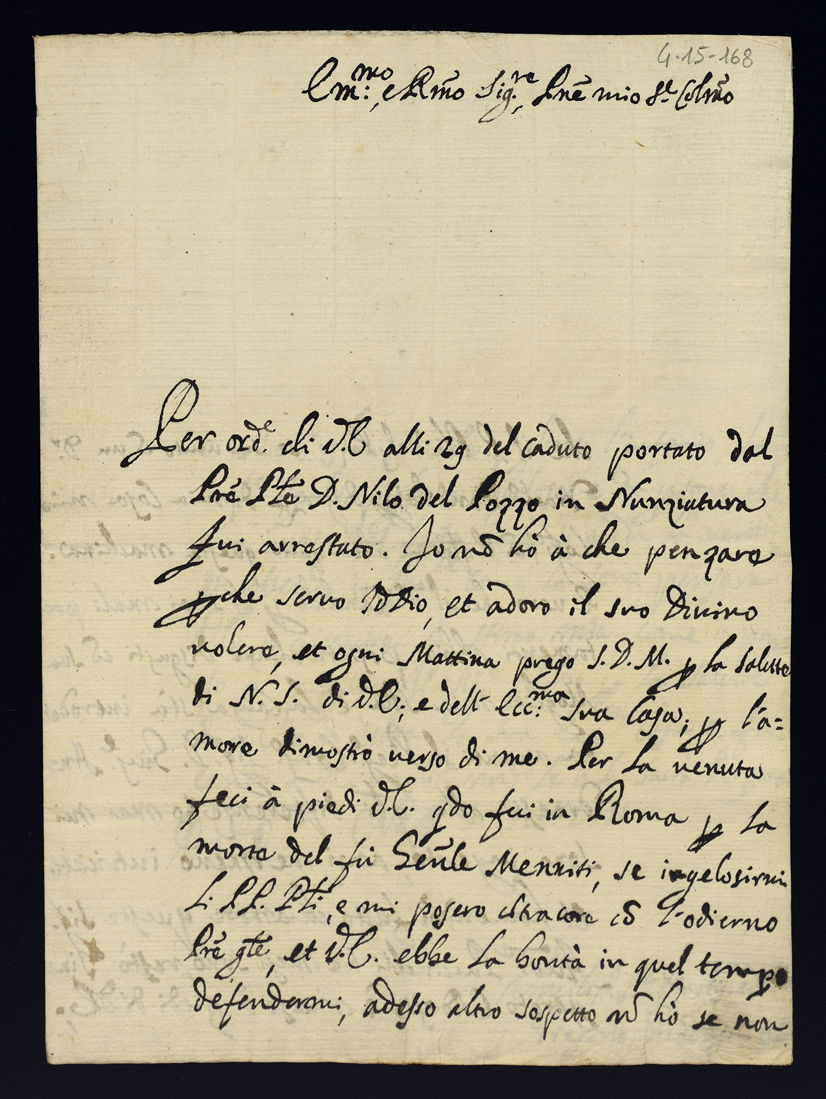 4-15-168
Em:mo, e Rmo Sig.re, Prne mio Sr Colmo
Per ord.e di V.E. alli 29 del caduto portato dal
Pre Pte D. Nilo del Pozzo in Nunziatura
fui arrestato. Io nō hò à che penzare
pche servo Iddio, et adoro il suo Divino
volere, et ogni Mattina prego S.D.M. p la salute
di N.S. di V.E., e dell' Ecc:ma sua Casa, p l'a=
more dimostrò verso di me. Per la venuta
feci à piedi V.E. qdo fui in Roma p la
morte del fù Gēnle Menniti, se ingelosirni
li PP. Pti, e mi posero cōtracore cō l'odierno
Pre gle, et V.E. ebbe la bontà in quel tempo
defendermi, adesso altro sospetto nō hò se non